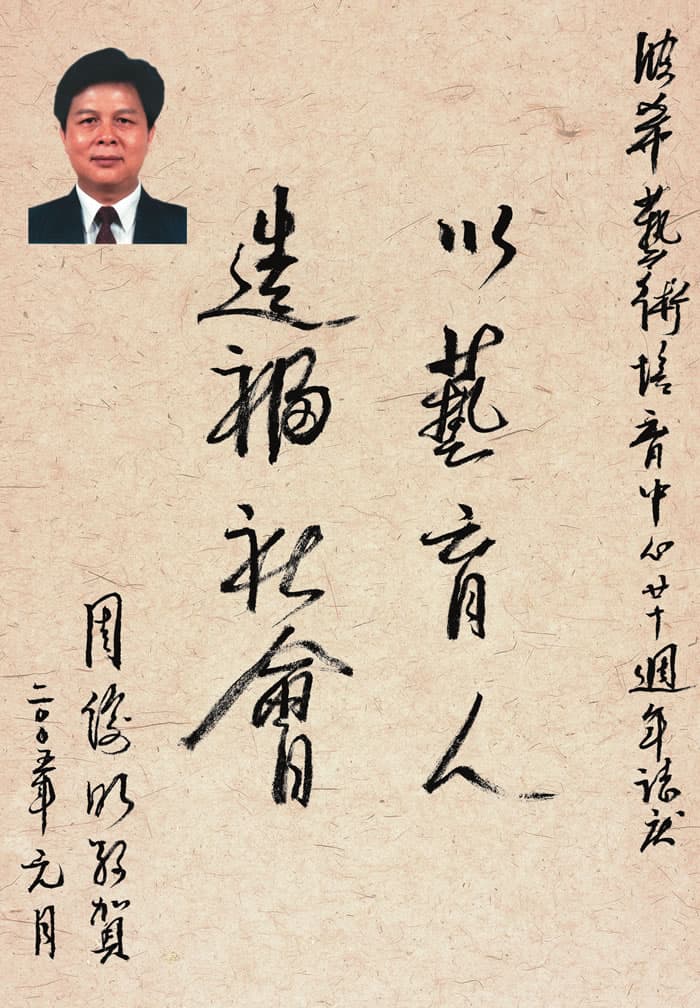 希藝術培育中心廿十週年誌慶
以藝育人
造福社會
周俊明敬賀
二〇〇五年元月